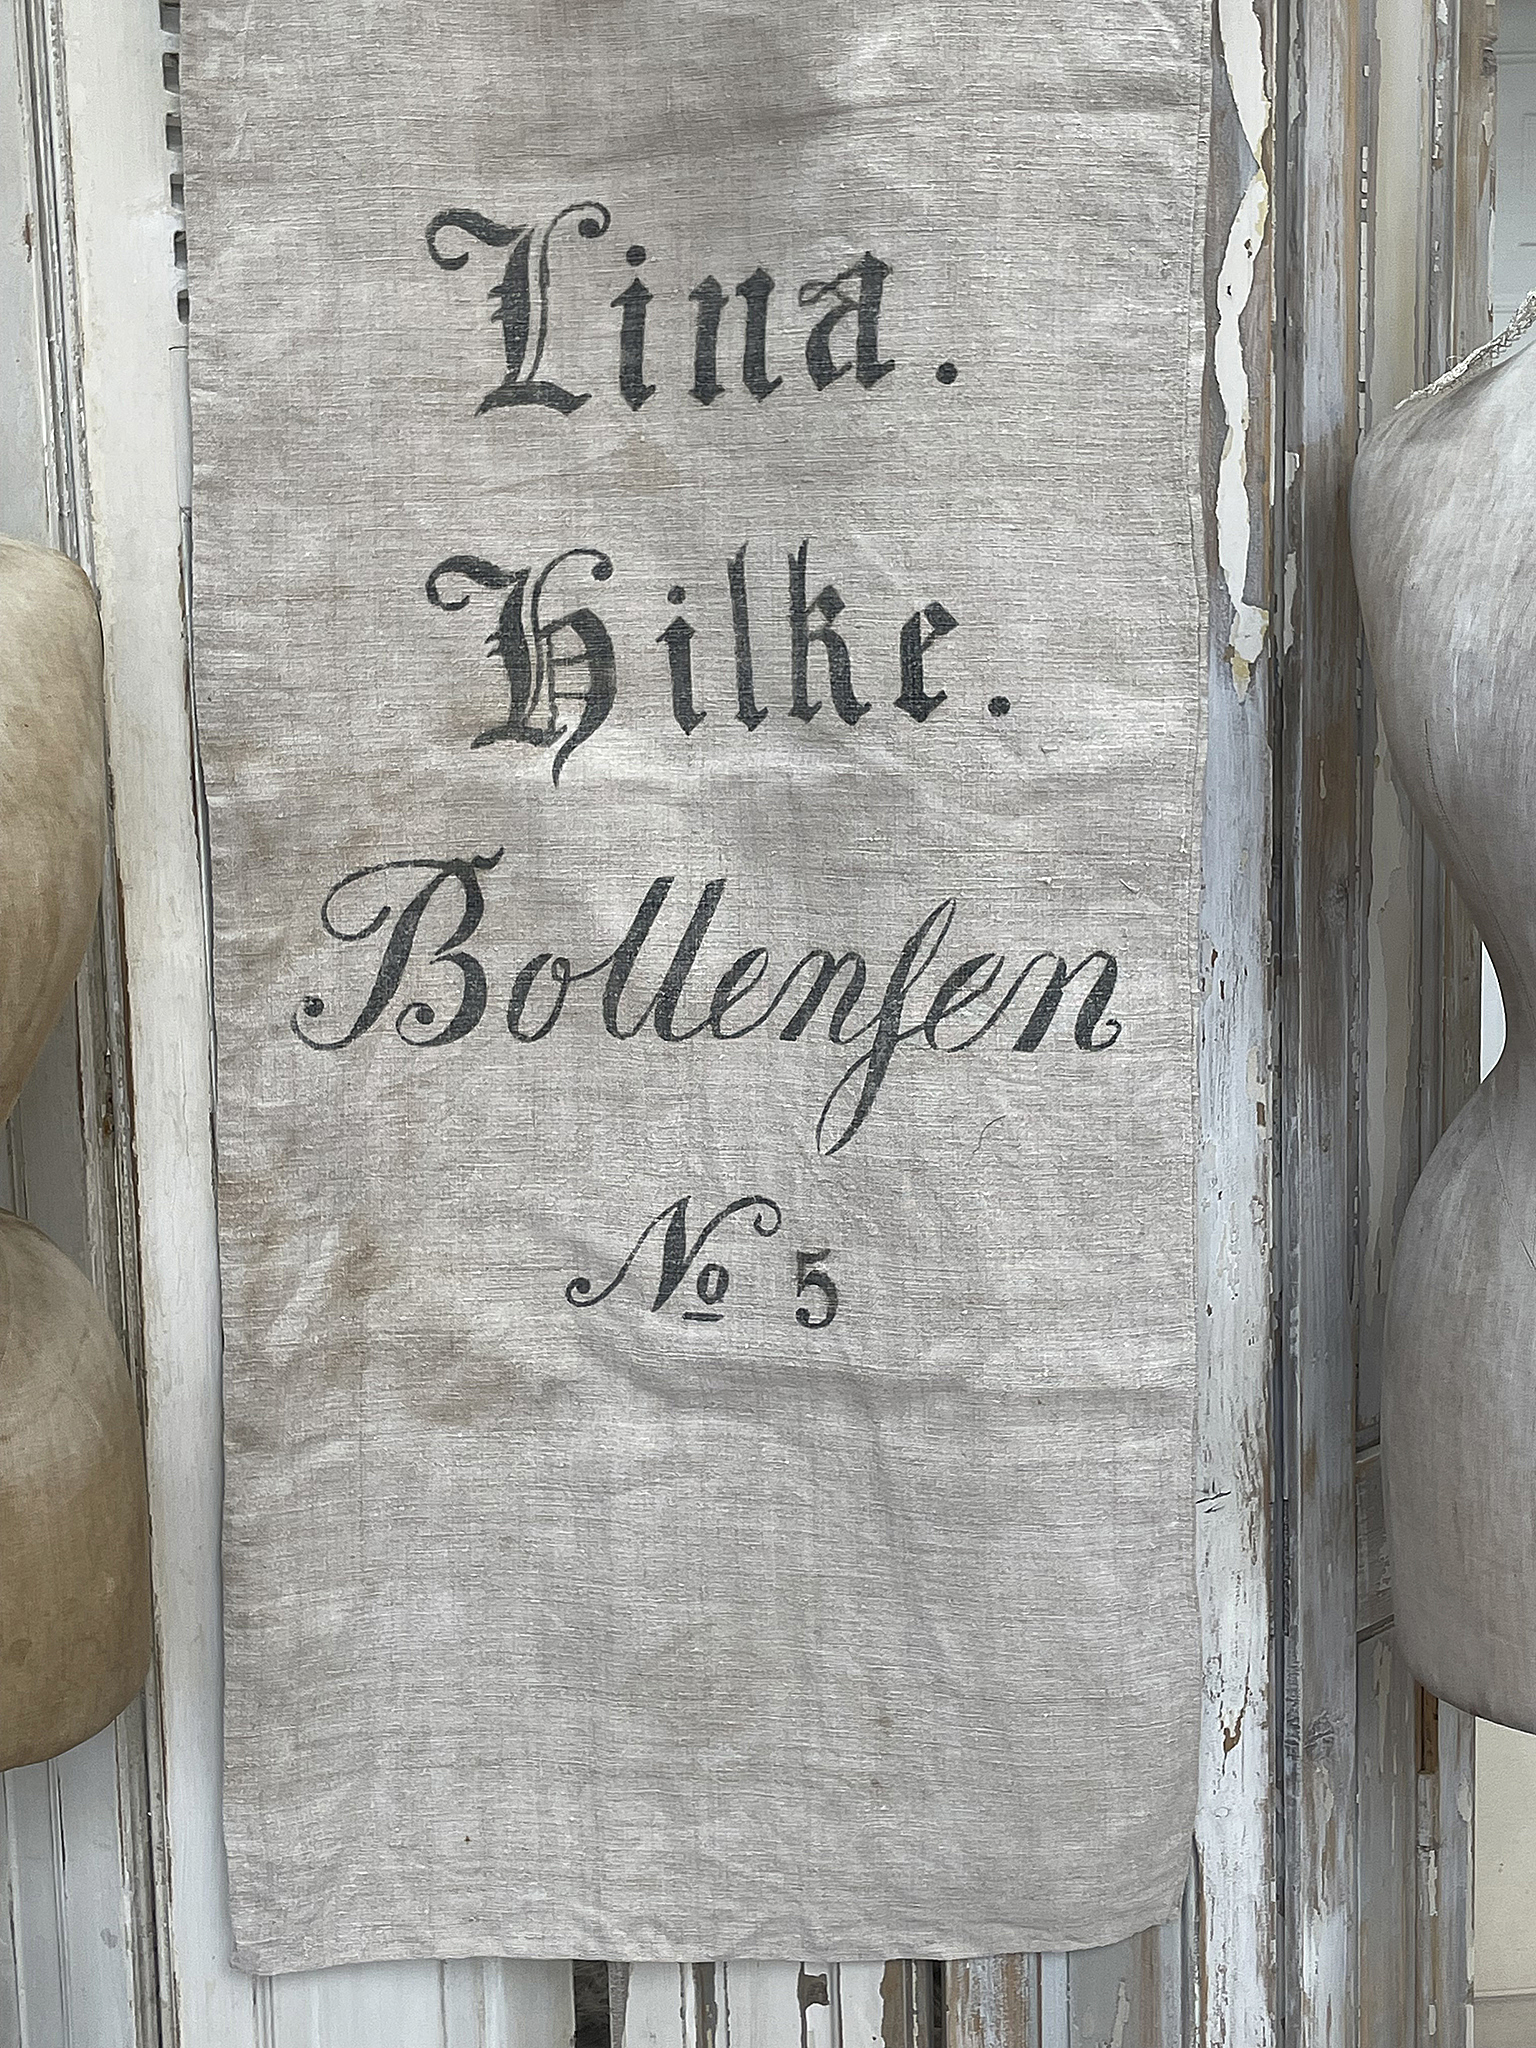 Lina.
Hilke.
Bollenſen
No 5